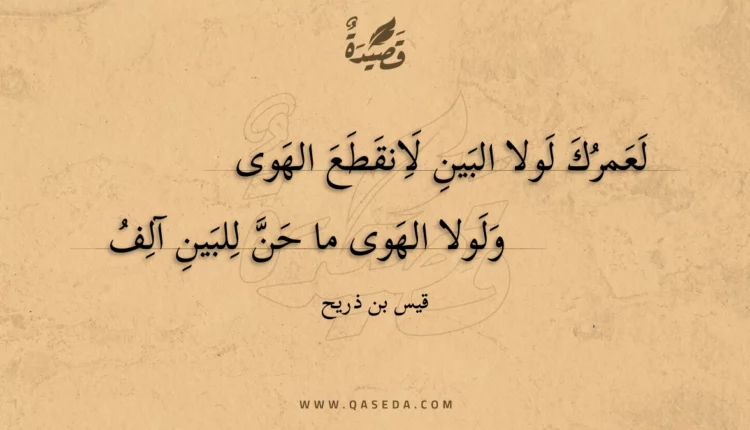 قَصِيدَةٌ
لَعَمرُكَ لَولا البَينِ لَاِنقَطَعَ الهَوى
وَلَولا الهَوى ما حَنَّ لِلبَينِ آلِفُ
قيس بن ذريح
WWW.QASEDA.COM